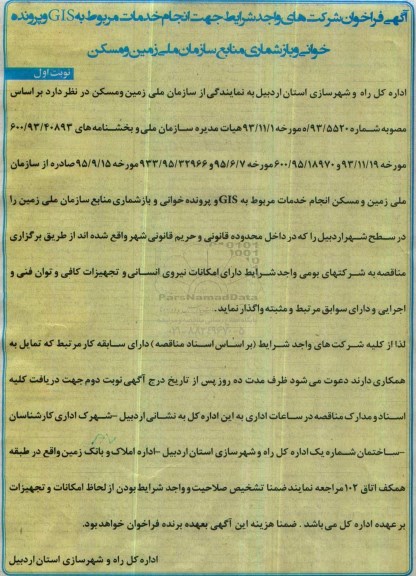 آگهی فراخوان شرکت های واجد شرایط جهت انجام خدمات مربوط به GIS و پرونده
خوانی و بازشماری منابع سازمان ملی زمین و مسکن
نوبت اول
اداره کل راه و شهرسازی استان اردبیل به نمایندگی از سازمان ملی زمین ومسکن در نظر دارد بر اساس
مصوبه شماره ۹۳/۵۵۲۰/ه مورخه ۹۳/۱۱/۱ هیات مدیره سازمان ملی و بخشنامه های ۶۰۰/۹۳/۴۰۸۹۳
مورخه ۹۳/۱۱/۱۹ و ۶۰۰/۹۵/۱۸۹۷۰ مورخه ۹۵/۶/۷ و ۹۳۳/۹۵/۳۲۹۶۶ مورخه ۹۵/۹/۱۵ صادره از سازمان
ملی زمین و مسکن انجام خدمات مربوط به GIS و پرونده خوانی و بازشماری منابع سازمان ملی زمین را
در سطح شهر اردبیل را که در داخل محدوده قانونی و حریم قانونی شهر واقع شده اند از طریق برگزاری
مناقصه به شرکتهای بومی واجد شرایط دارای امکانات نیروی انسانی و تجهیزات کافی و توان فنی و
اجرایی و دارای سوابق مرتبط و مثبته واگذار نماید.
ParsNamadData
لذا از کلیه شرکت های واجد شرایط (بر اساس اسناد مناقصه) دارای سابقه کار مرتبط که تمایل به
همکاری دارند دعوت می شود ظرف مدت ده روز پس از تاریخ درج آگهی نوبت دوم جهت دریافت کلیه
اسناد و مدارک مناقصه در ساعات اداری به این اداره کل به نشانی اردبیل -شهرک اداری کارشناسان
-ساختمان شماره یک اداره کل راه و شهرسازی استان اردبیل -اداره املاک و بانک زمین واقع در طبقه
همکف اتاق ۱۰۲ مراجعه نمایند ضمنا تشخیص صلاحیت و واجد شرایط بودن از لحاظ امکانات و تجهیزات
بر عهده اداره کل می باشد . ضمنا هزینه این آگهی بعهده برنده فراخوان خواهد بود.
اداره کل راه و شهرسازی استان اردبیل